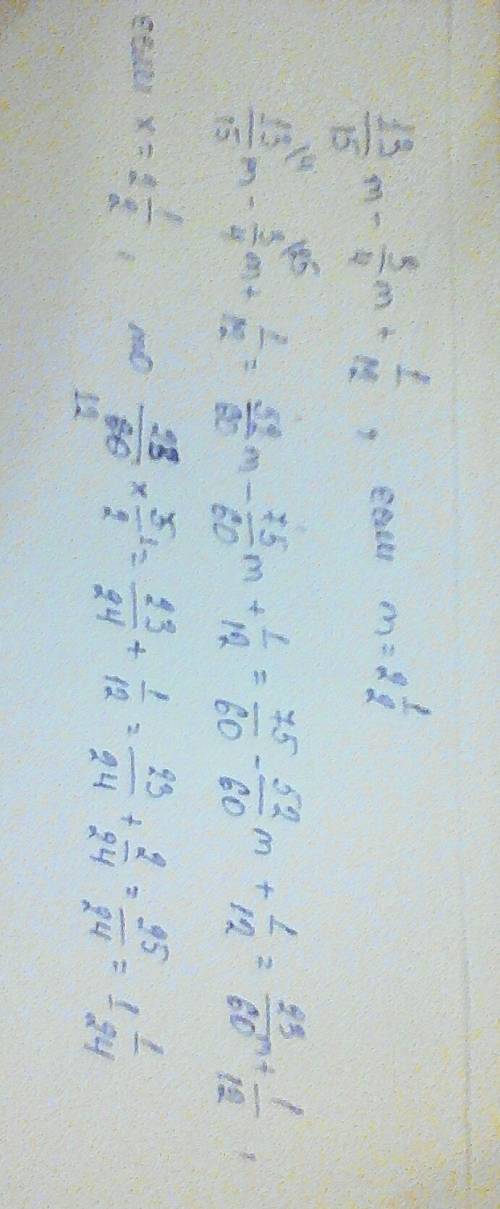 13/15 m - 5/4 m + 1/12 , если m = 2 1/2
13\4/15 m - 5\15/4 m + 1/12 = 52/60 m - 75/60 m + 1/12 = 75/60 - 52/60 m + 1/12 = 23/60 m + 1/12 ,
если x = 2 1/2 , то 23/60 12 x 5 1/2 = 23/24 + 1/12 = 23/24 + 2/24 = 25/24 = 1 1/24